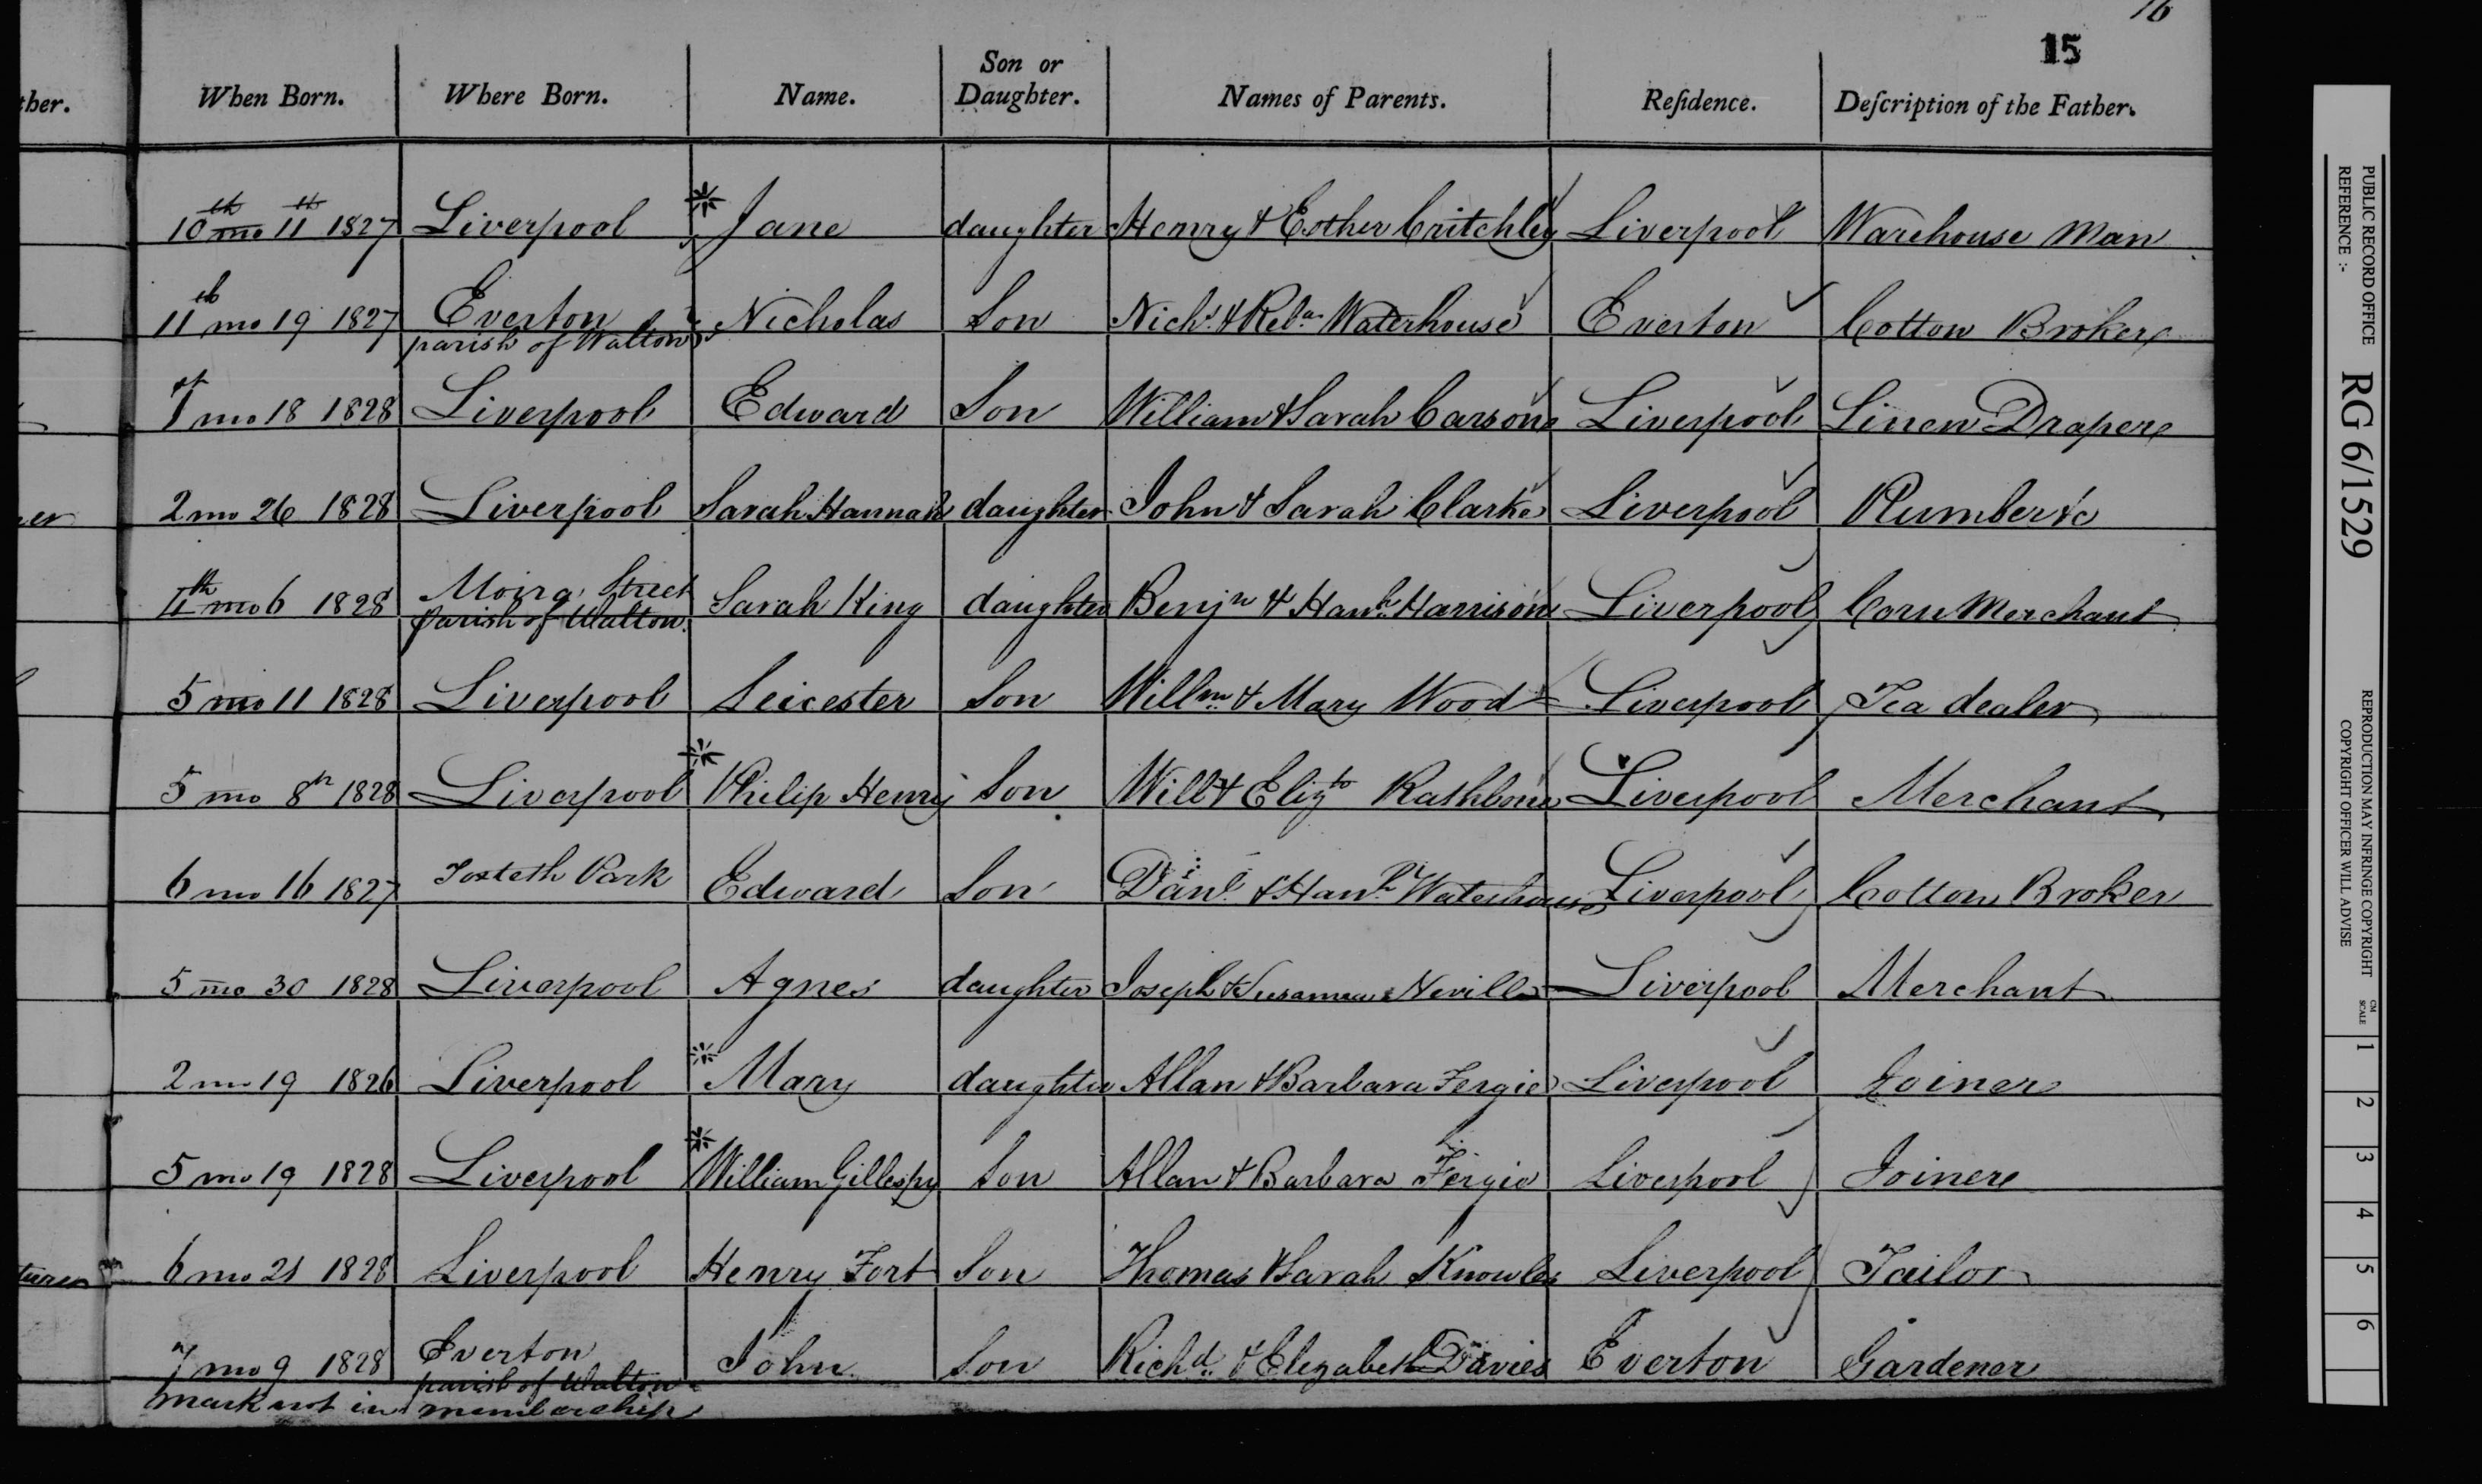 16
15
ther. When Born. Where Born. Name. Son or Daughter. Names of Parents. Reſidence. Deſcription of the Father.
10th mo 11th 1827 Liverpool * Jane daughter Henry & Esther Critchley Liverpool Warehouse Man
11th mo 19 1827 Everton parish of Walton Nicholas Son Nichs. & Reba. Waterhouse Everton Cotton Broker
1st mo 18 1828 Liverpool Edward Son William & Sarah Carson Liverpool Linen Draper
2 mo 26 1828 Liverpool Sarah Hannah daughter John & Sarah Clarke Liverpool Plumber &c
4th mo 6 1828 Moira Street parish of Walton. Sarah King daughter Benjn & Hanh. Harrison Liverpool Corn Merchant
5 mo 11 1828 Liverpool Leicester Son Willm. & Mary Wood Liverpool Tea dealer
5 mo 8th 1828 Liverpool * Philip Henry Son Willm & Elizth Rathbone Liverpool Merchant
6 mo 16 1827 Toxteth Park Edward Son Danl. & Hanh. Waterhouse Liverpool Cotton Broker
5 mo 30 1828 Liverpool Agnes daughter Joseph & Neville Liverpool Merchant
2 mo 19 1826 Liverpool * Mary daughter Allan & Barbara Fergie Liverpool Joiner
5 mo 19 1828 Liverpool * William Gillespy Son Allan & Barbara Fergie Liverpool Joiner
6 mo 21 1828 Liverpool Henry Fort Son Thomas & Sarah Knowles Liverpool Tailor
7 mo 9 1828 Everton parish of Walton John Son Richd. & Elizabeth Davies Everton Gardener
mark not in membership
PUBLIC RECORD OFFICE
REFERENCE :-
RG 6/1529
REPRODUCTION MAY INFRINGE COPYRIGHT
COPYRIGHT OFFICER WILL ADVISE
CM
SCALE
1 2 3 4 5 6